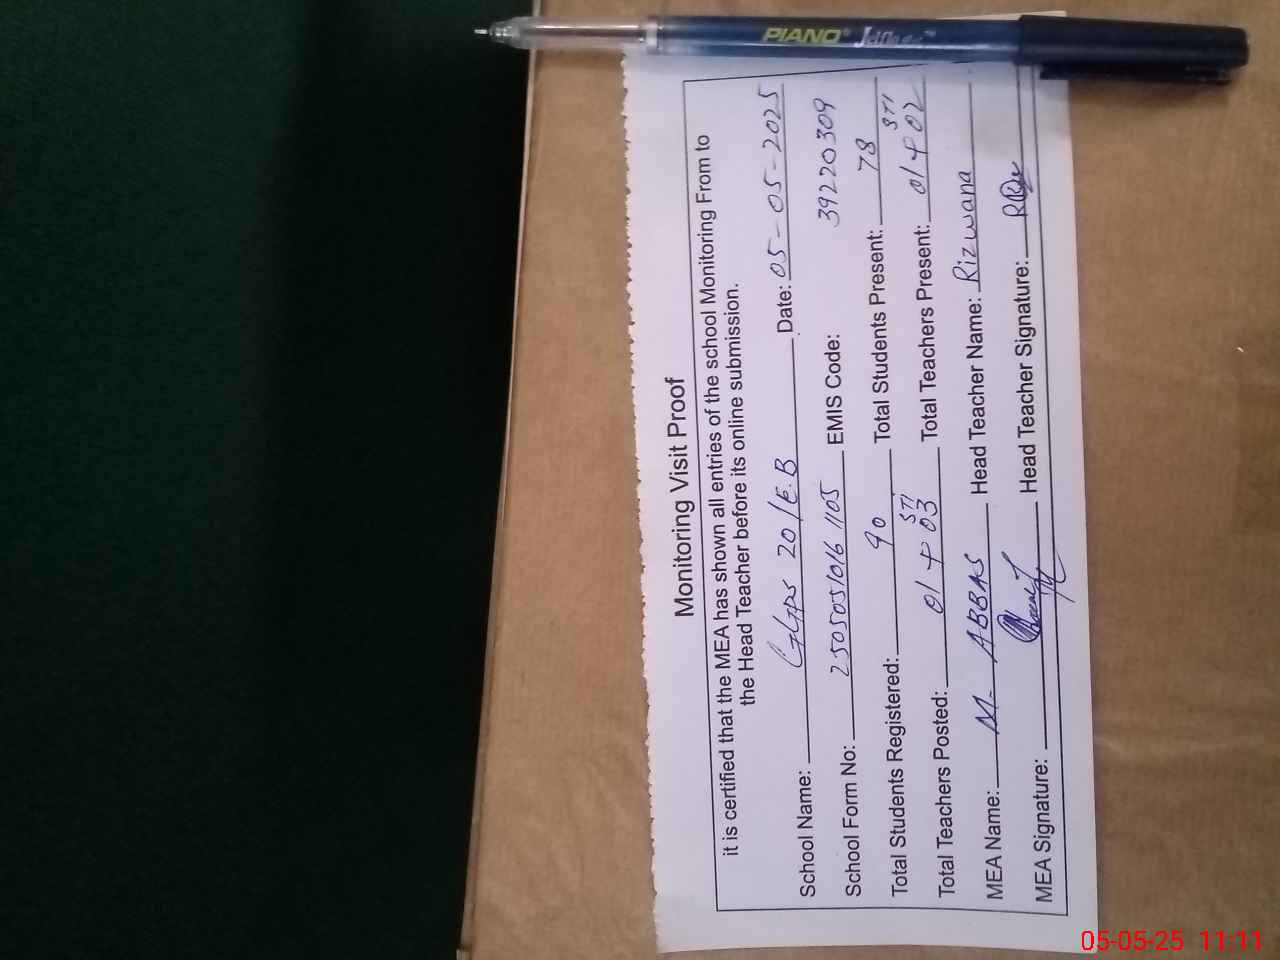 PIANO® Jelflo
Monitoring Visit Proof
it is certified that the MEA has shown all entries of the school Monitoring From to
the Head Teacher before its online submission.
School Name: GGPS 20/E.B Date: 05-05-2025
School Form No: 2505051016 1105 EMIS Code: 39220309
Total Students Registered: 90 Total Students Present: 78
Total Teachers Posted: 01 + 03 STI Total Teachers Present: 01 + 02 STI
MEA Name: M. ABBAS Head Teacher Name: Rizwana
MEA Signature: Head Teacher Signature:
05-05-25 11:11